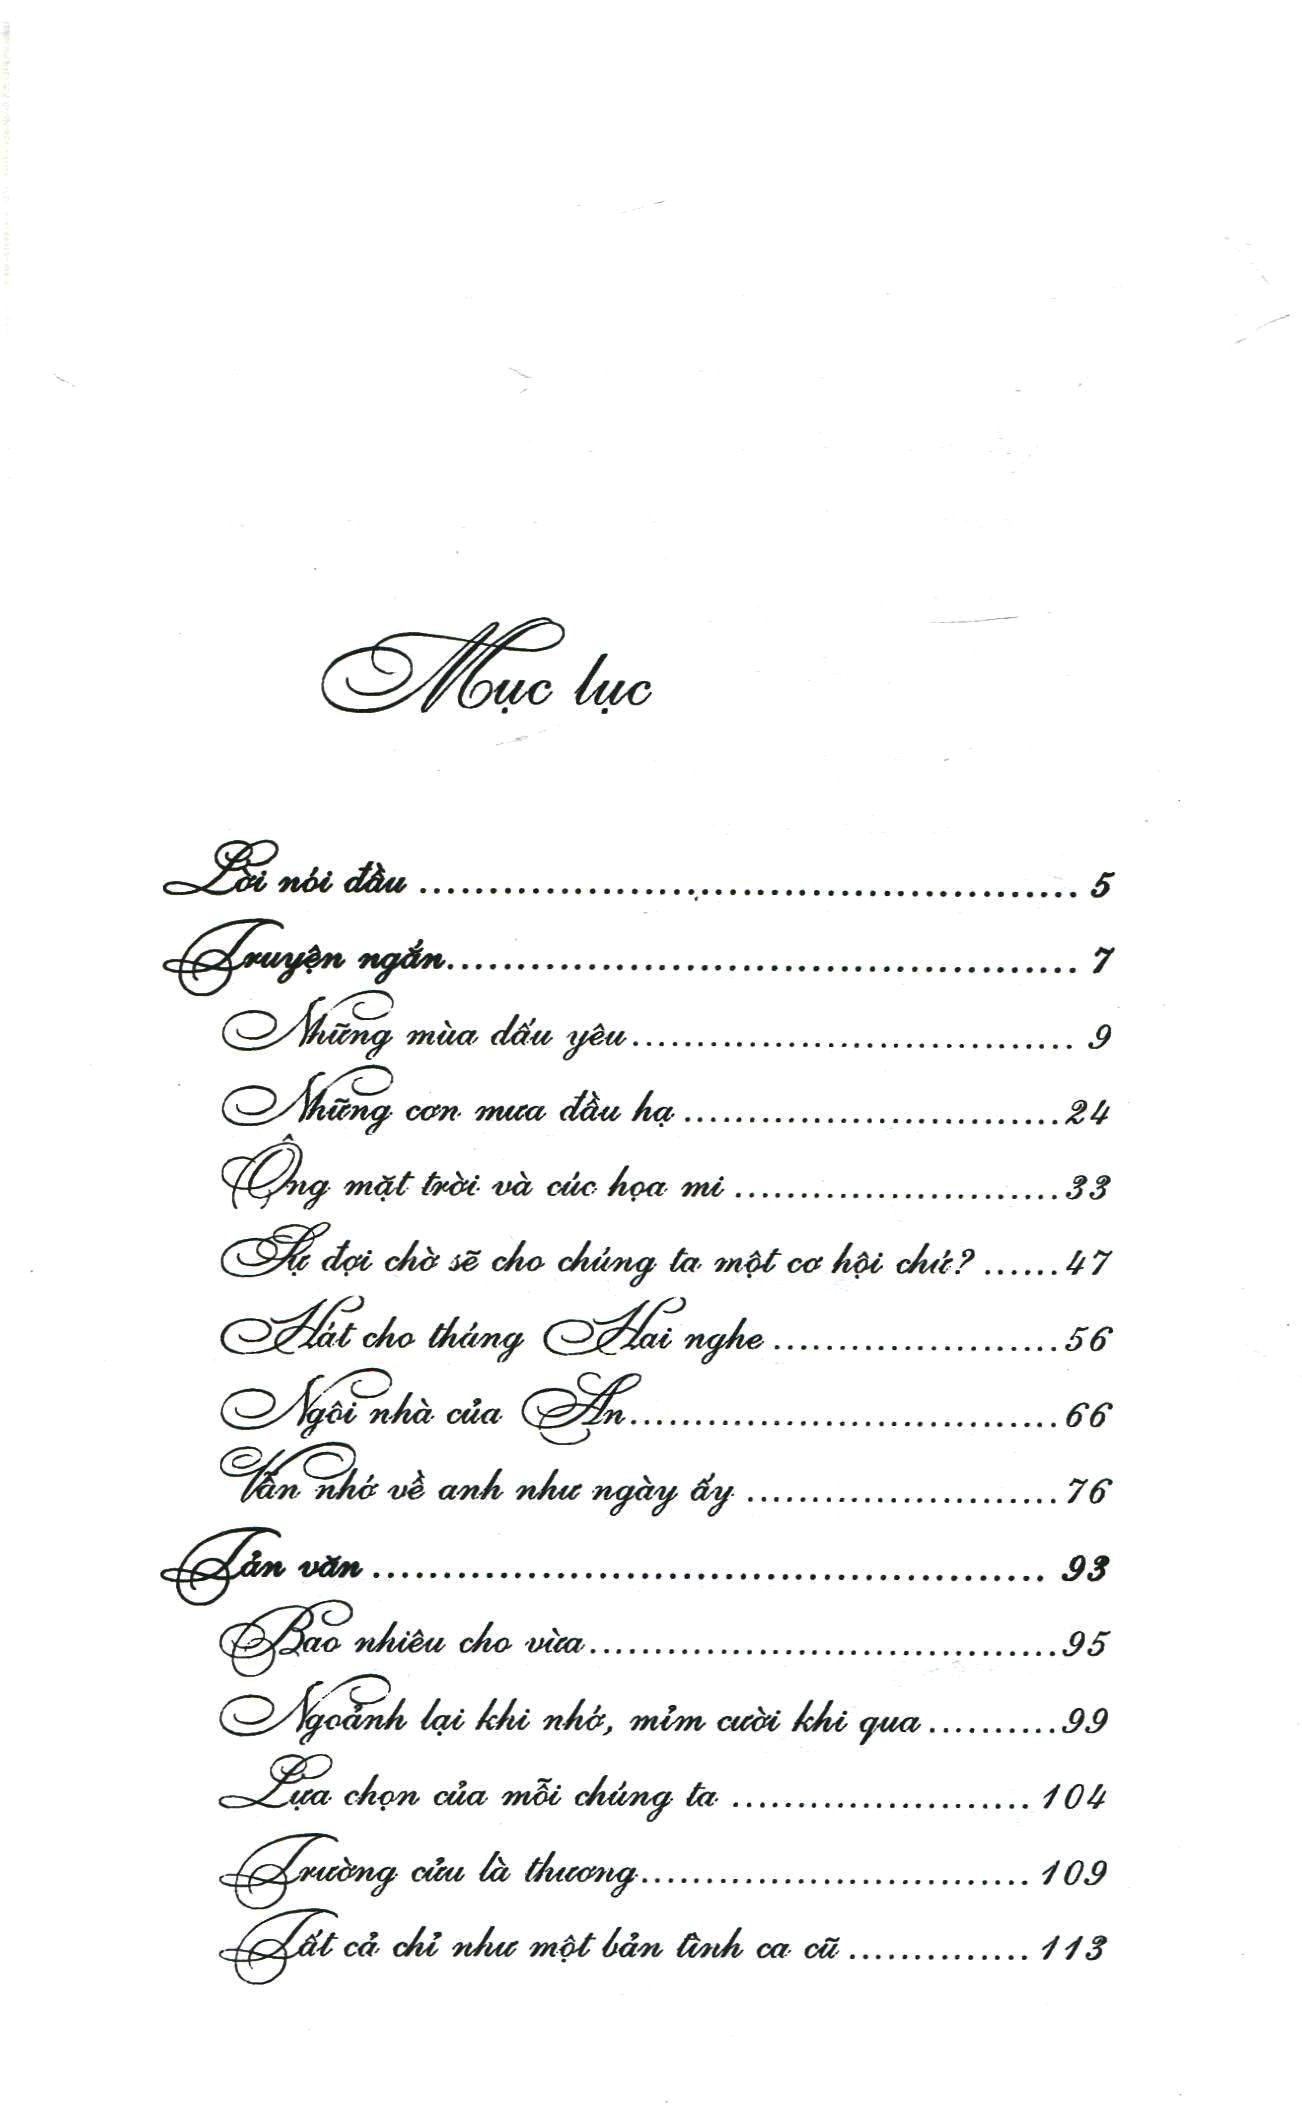 Mục lục
Lời nói đầu ................................................ 5
Truyện ngắn.............................................. 7
Những mùa dấu yêu.................................. 9
Những cơn mưa đầu hạ.............................24
Ông mặt trời và cúc họa mi.........................33
Sự đợi chờ sẽ cho chúng ta một cơ hội chứ? ......47
Hát cho tháng Hai nghe......................56
Ngôi nhà của An.................................66
Vẫn nhớ về anh như ngày ấy ........................76
Tản văn ................................................ 93
Bao nhiêu cho vừa....................................95
Ngoảnh lại khi nhớ, mỉm cười khi qua..........99
Lựa chọn của mỗi chúng ta .......................104
Trường cửu là thương..............................109
Tất cả chỉ như một bản tình ca cũ..............113